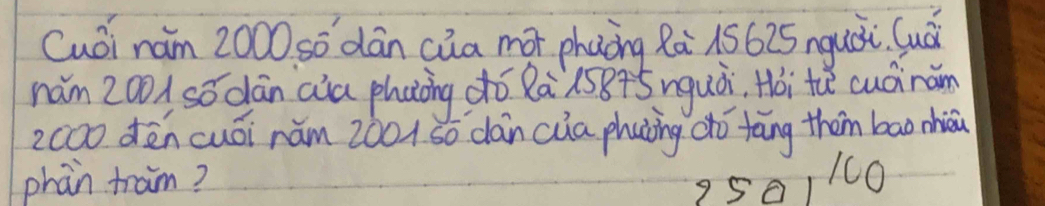 Cuối năm 2000 số dân của một phường là 15625 người. Cuối
năm 2001 số dân của phường đó là 15875 người. Hỏi từ cuối năm
2000 đến cuối năm 2001 số dân của phường đó tăng thêm bao nhiêu
phần trăm?
250 100